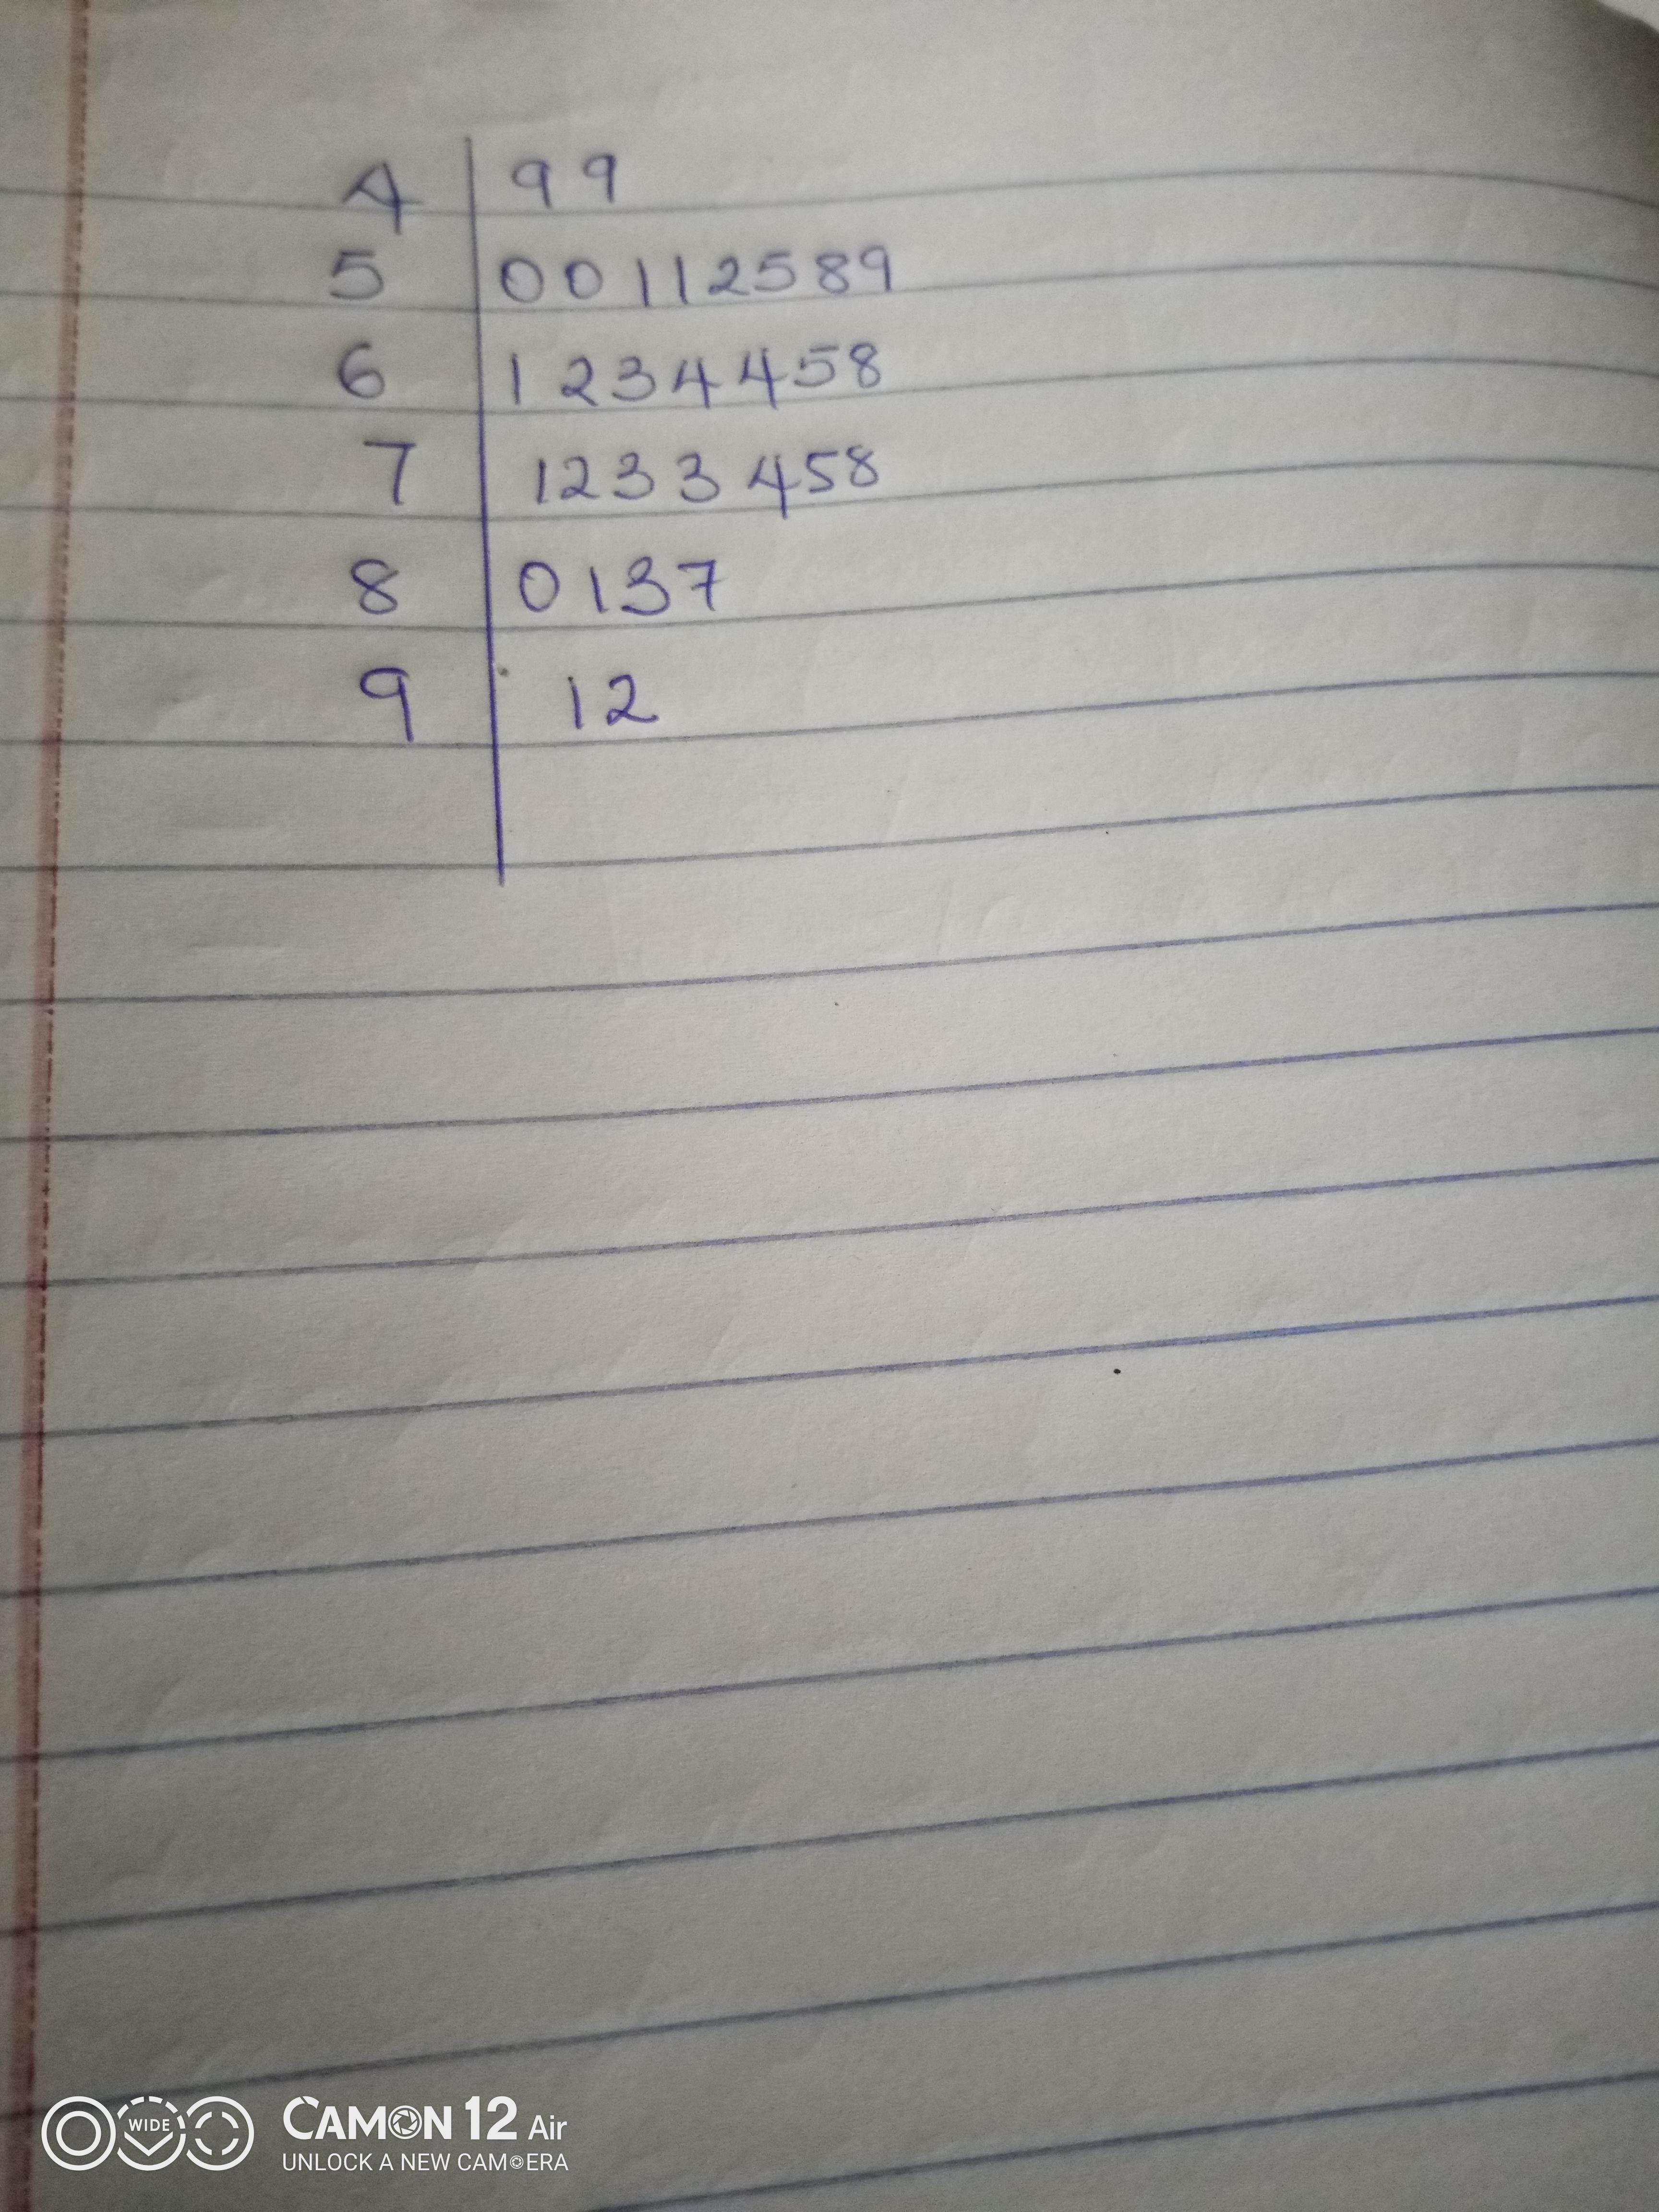 4 | 9 9
5 | 0 0 1 1 2 5 8 9
6 | 1 2 3 4 4 5 8
7 | 1 2 3 3 4 5 8
8 | 0 1 3 7
9 | 1 2
WIDE
CAMON 12 Air
UNLOCK A NEW CAMERA